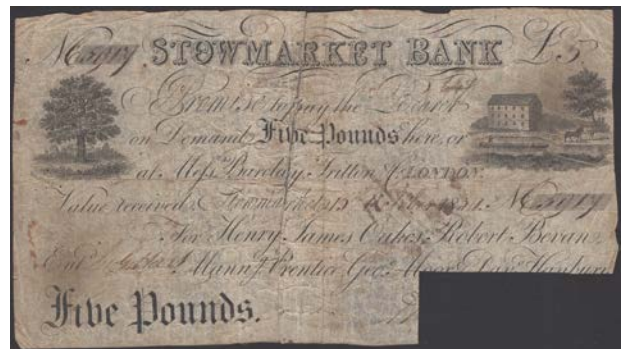 STOWMARKET BANK £5
I Promise to pay the Bearer
on Demand Five Pounds here, or
at Mess.rs Barclay, Tritton & C.o LONDON.
Value received. Stowmarket, 15 1831. N
For Henry James Oakes, Robert Bevan,
Ent.d Mann, Prentice, Geo.
Five Pounds.